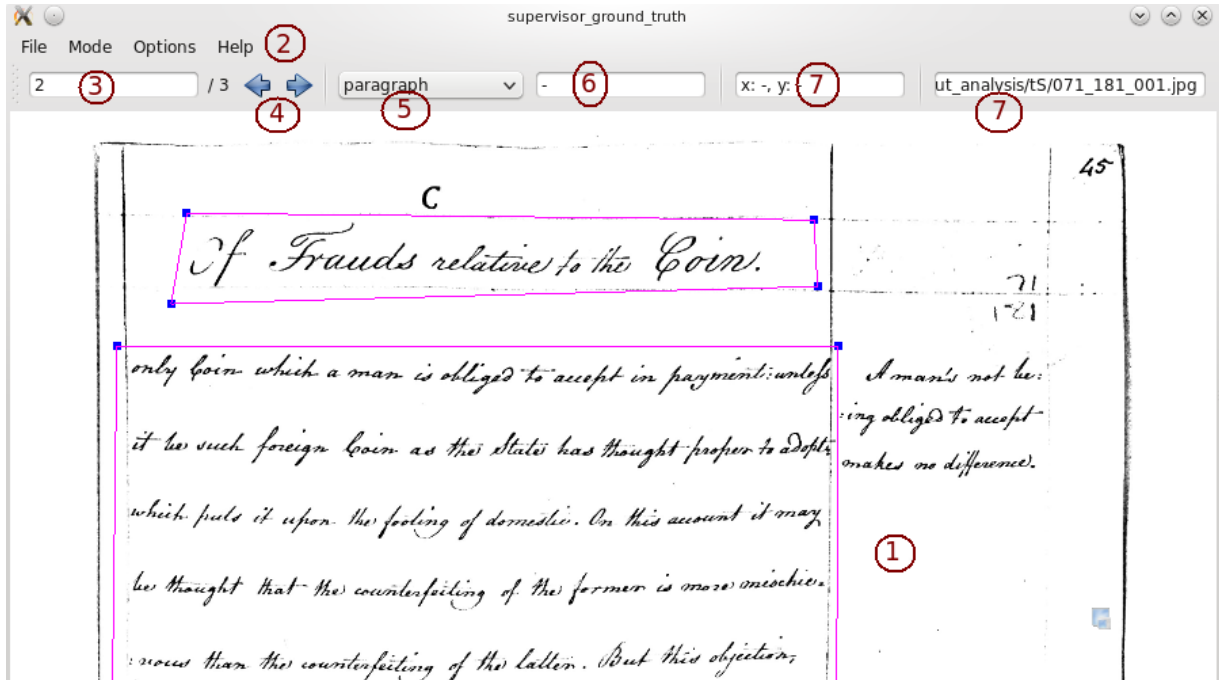 supervisor_ground_truth
File Mode Options Help 2
2 3 / 3 4 paragraph 5 - 6 x: -, y: - 7 ut_analysis/tS/071_181_001.jpg 7
45
C
Of Frauds relative to the Coin.
71
121
only Coin which a man is obliged to accept in payment: unless
it be such foreign Coin as the State has thought proper to adopt:
which puts it upon the footing of domestic. On this account it may
be thought that the counterfeiting of the former is more mischie=
:vous than the counterfeiting of the latter. But this objection,
A man's not be:
:ing obliged to accept
makes no difference.
1